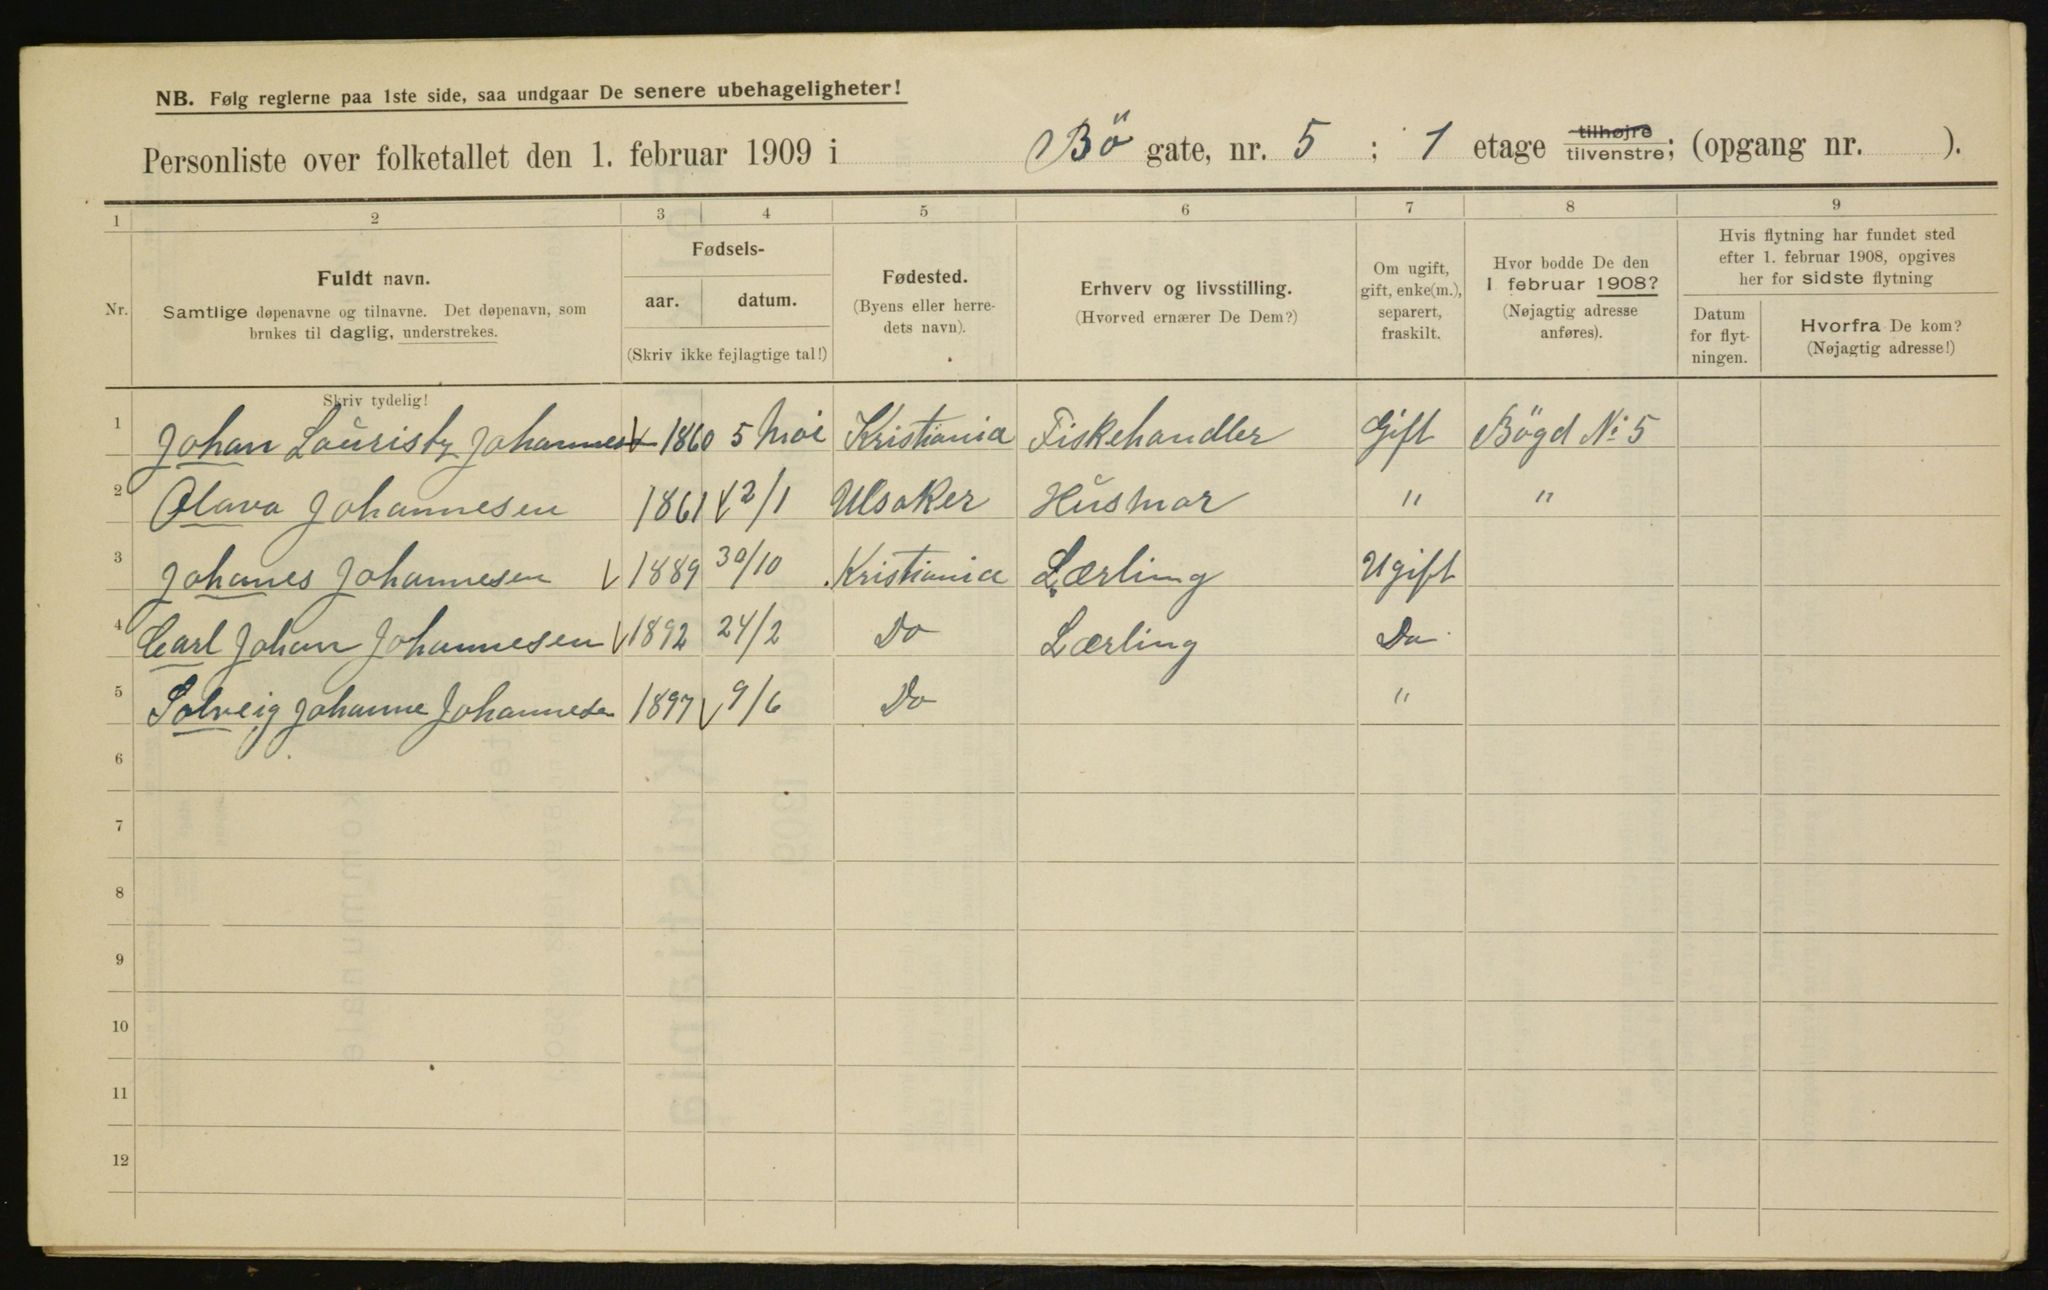 NB. Følg reglerne paa 1ste side, saa undgaar De senere ubehageligheter!
Personliste over folketallet den 1. februar 1909 i Bö gate, nr. 5 ; 1 etage tilhøjre tilvenstre; (opgang nr. ).
1 2 3 4 5 6 7 8 9
Nr.
Fuldt navn.
Samtlige døpenavne og tilnavne. Det døpenavn, som
brukes til daglig, understrekes.
Skriv tydelig!
Fødsels-
aar. datum.
(Skriv ikke fejlagtige tal!)
Fødested.
(Byens eller herre-
dets navn).
Erhverv og livsstilling.
(Hvorved ernærer De Dem?)
Om ugift,
gift, enke(m.),
separert,
fraskilt.
Hvor bodde De den
1 februar 1908?
(Nøjagtig adresse
anføres).
Hvis flytning har fundet sted
efter 1. februar 1908, opgives
her for sidste flytning
Datum
for flyt-
ningen.
Hvorfra De kom?
(Nøjagtig adresse!)
1 Johan Johannes 1860 5 Mai Kristiania Fiskehandler Gift Bögd No 5
2 Olava Johannesen 1861 2/1 Ulsaker Husmor " "
3 Johanes Johannesen 1889 30/10 Kristiania Lærling Ugift
4 Carl Johan Johannesen 1892 24/2 Do Lærling Do
5 Solveig Johanne Johannesen 1897 9/6 Do "
6
7
8
9
10
11
12